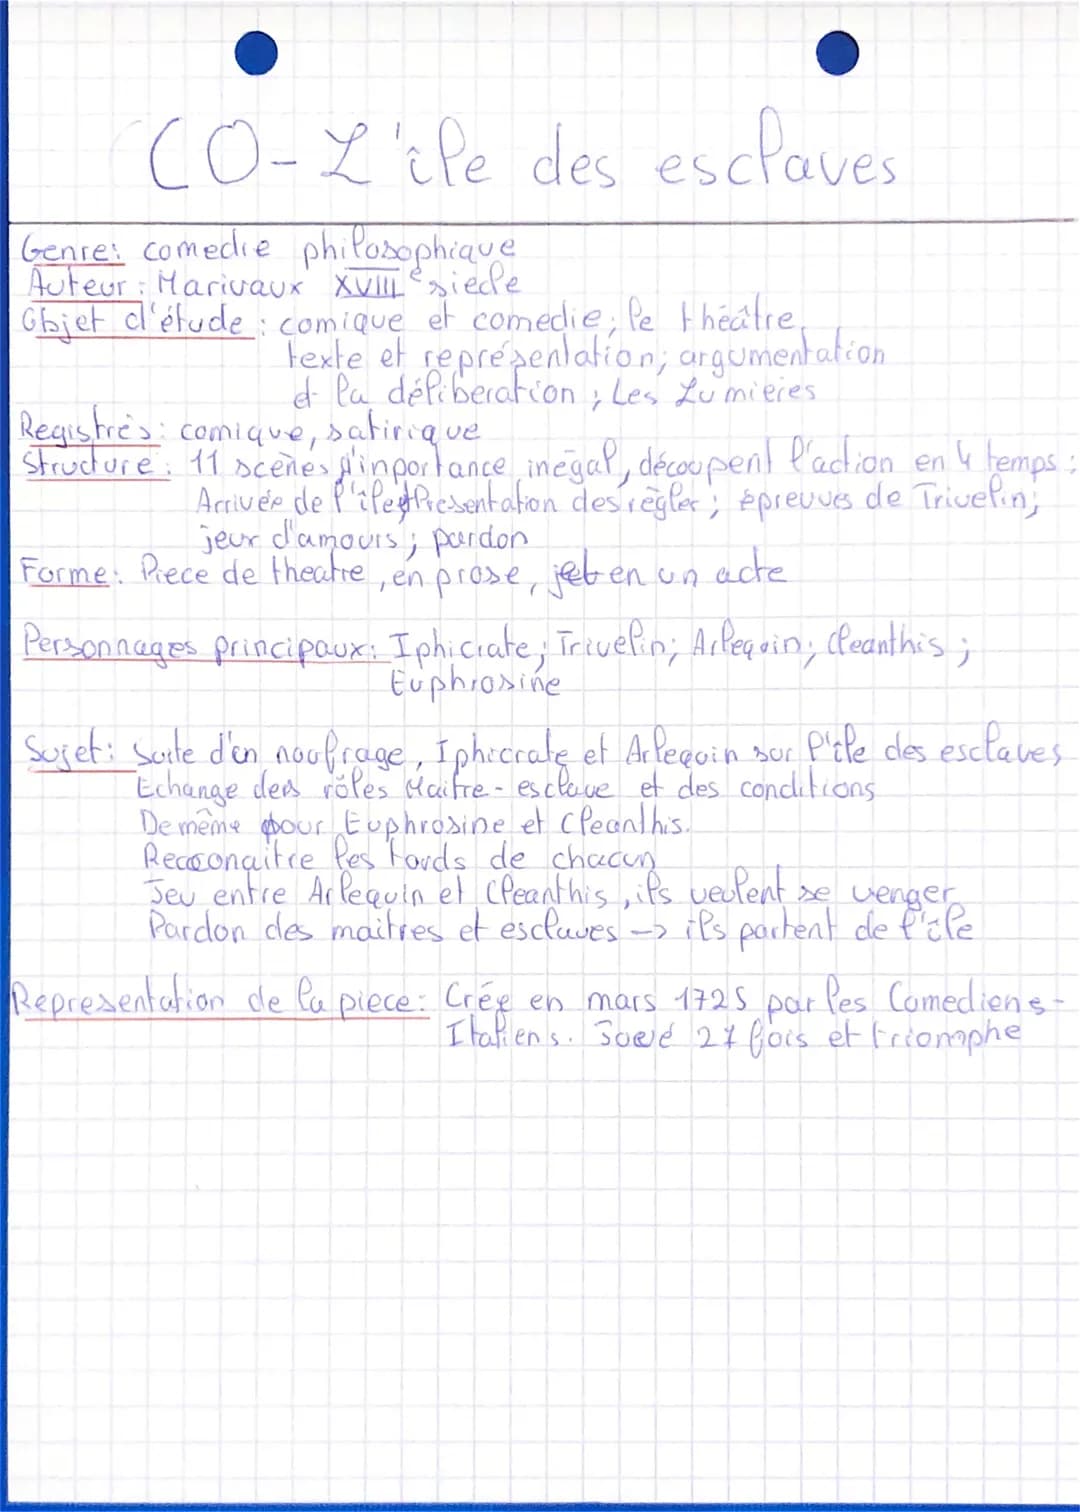 CO - L'île des esclaves
Genre: comedie philosophique
Auteur : Marivaux XVIIIe siecle
Objet d'étude : comique et comedie ; le théâtre,
texte et représentation ; argumentation
et la déliberation ; Les Lumieres
Registres : comique, satirique
Structure : 11 scènes d'inportance inégal, découpent l'action en 4 temps :
Arrivée de l'île et Presentation des règler ; épreuves de Trivelin ;
jeux d'amours ; pardon
Forme : Piece de theatre, en prose, et en un acte
Personnages principaux : Iphicrate ; Trivelin ; Arlequin ; Cleanthis ;
Euphrosine
Sujet : Suite d'un noufrage, Iphicrate et Arlequin sur l'île des esclaves
Echange des rôles Maitre - esclave et des conditions
De même pour Euphrosine et Cleanthis.
Reconaitre les tords de chacun
Jeu entre Arlequin et Cleanthis, ils veulent se venger
Pardon des maitres et esclaves -> ils partent de l'île
Representation de la piece : Crée en mars 1725 par les Comediens-
Italiens. Joué 21 fois et triomphe